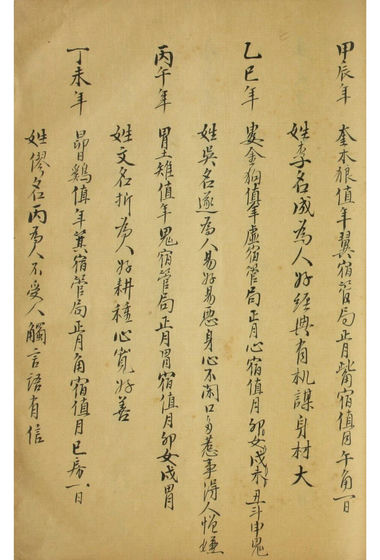 甲辰年 奎木狼值年翼宿管局正月觜宿值月午角一日
姓李名成為人好經典有机謀身材大
乙巳年 婁金狗值年虛宿管局正月心宿值月卯女戌未丑斗申鬼
姓吳名遂為人易好易惡身心不闲口多惹事得人怪嫌
丙午年 胃土雉值年鬼宿管局正月胃宿值月卯女戌胃
姓文名折為人好耕種心寬好善
丁未年 昴日鷄值年箕宿管局正月角宿值月巳房一日
姓僇名丙為人不受人觸言語有信